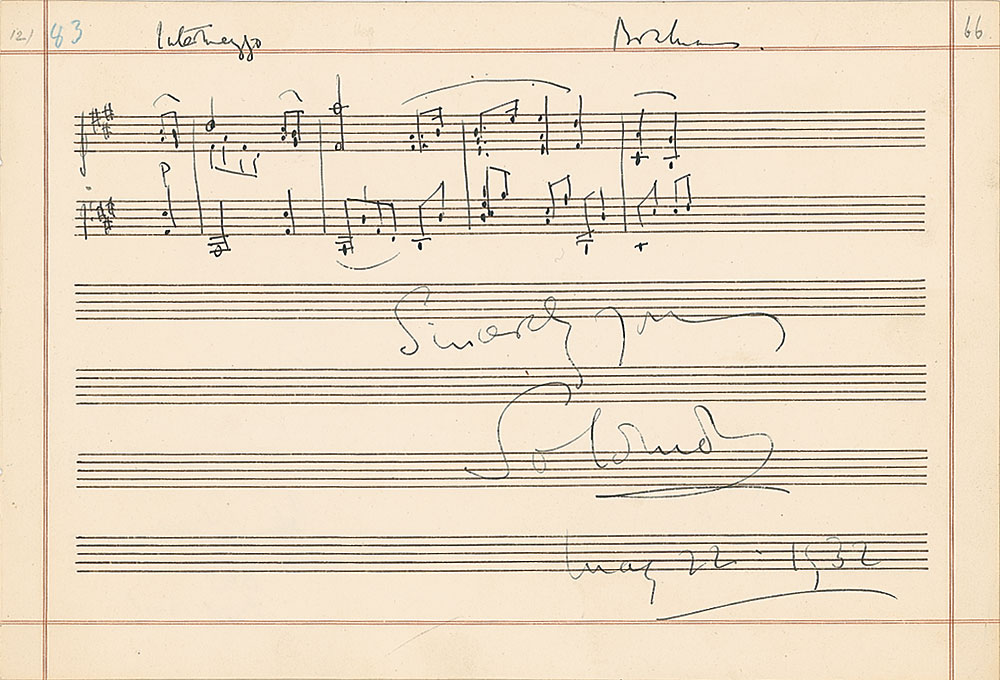 121 83 Intermezzo Brahms. 66
p
Sincerely yours
Solomon
May 22 - 1932